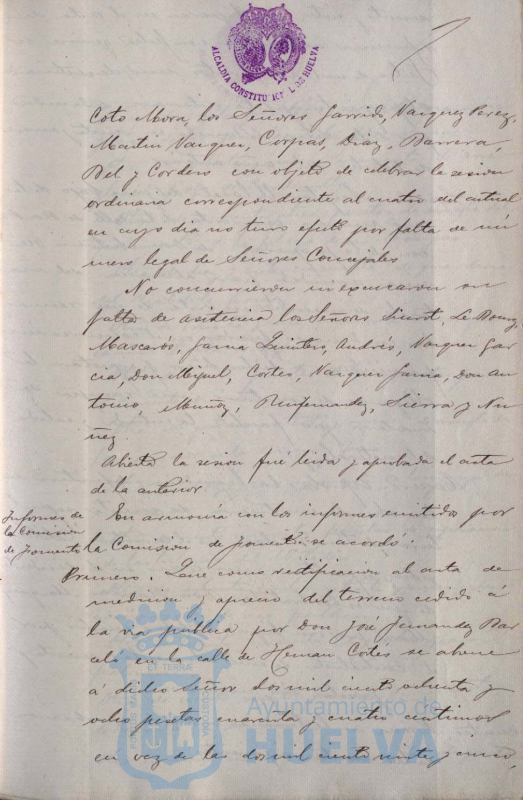 ALCALDIA CONSTITUCIONAL DE HUELVA
Coto Mora, los Señores Garrido, Vazquez Perez,
Martin Vazquez, Corpas, Diaz, Barrera,
Bel y Cordero con objeto de celebrar la sesion
ordinaria correspondiente al cuatro del actual
en cuyo dia no tuvo efecto por falta de nú
mero legal de Señores Concejales
No concurrieron ni excusaron su
falta de asistencia los Señores Siurot, Le Bourg,
Mascarós, Garcia Quintero, Andrés, Vazquez Gar
cia, Don Miguel, Cortes, Vazquez Garcia, Don An
tonio, Muñoz, Ruifernandez, Sierra y Nu
ñez
Abierta la sesion fué leida y aprobada el acta
de la anterior
Informes de
la Comision
de Fomento
En armonía con los informes emitidos por
la Comision de Fomento se acordó.
Primero. Que como rectificacion al acta de
medicion y aprecio del terreno cedido á
la via pública por Don José Fernandez Bar
celo en la calle de Hernan Cortes se abone
á dicho Señor dos mil ciento ochenta y
ocho pesetas cuarenta y cuatro centimos
en vez de las dos mil ciento veinte y cinco,
Ayuntamiento de
HUELVA